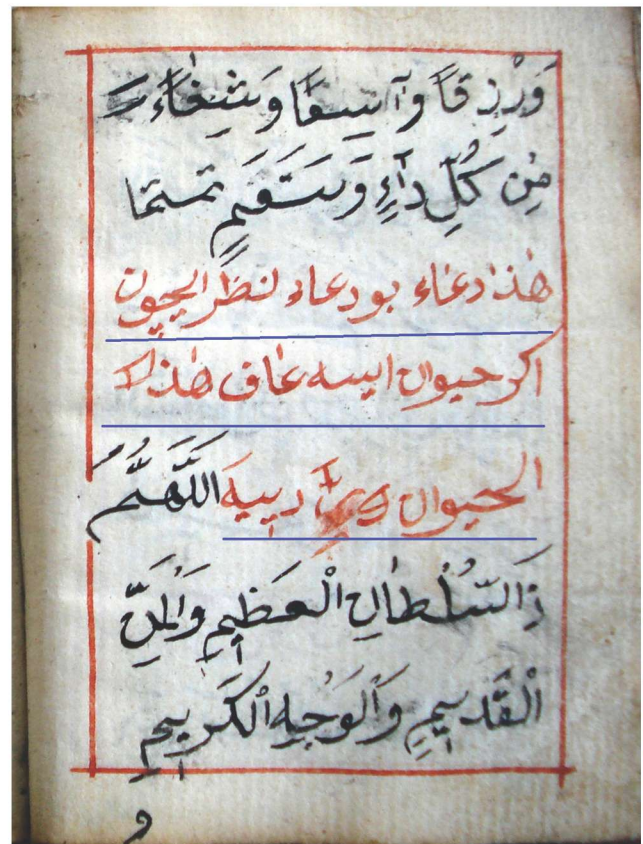 وَرِزْقاً وَآسِعًا وَشِفَٰآءً
مِن كُلِّ دَآءٍ وَسَقَمٍ تمت تما
هٰذا دعاء بو دعاء لنظر ايچون
اكر حيوان ايسه عاف هٰذلا
الحيوان دييه اَللَّهُمَّ
ذَالسُّلْطَانِ الْعَظِيمِ وَالْمَنِّ
الْقَدِيمِ وَالْوَجْهِ الْكَرِيمِ
و